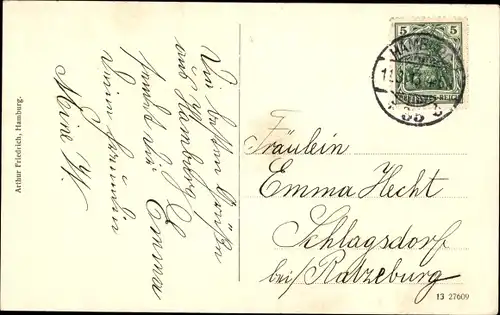 Arthur Friedrich, Hamburg.
Die besten Grüße
aus Hamburg
sendet dir
Deine Freundin
Emma
Meine
Fräulein
Emma Hecht
Schlagsdorf
bei Ratzeburg
13 27609
5 5
HAMB